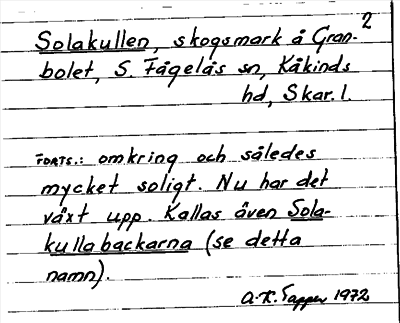 2
Solakullen, skogsmark å Gran-
bolet, S. Fågelås sn, Kåkinds
hd, Skar. l.
FORTS.: omkring och således
mycket soligt. Nu har det
växt upp. Kallas även Sola-
kullabackarna (se detta
namn).
A.K. Tapper 1972